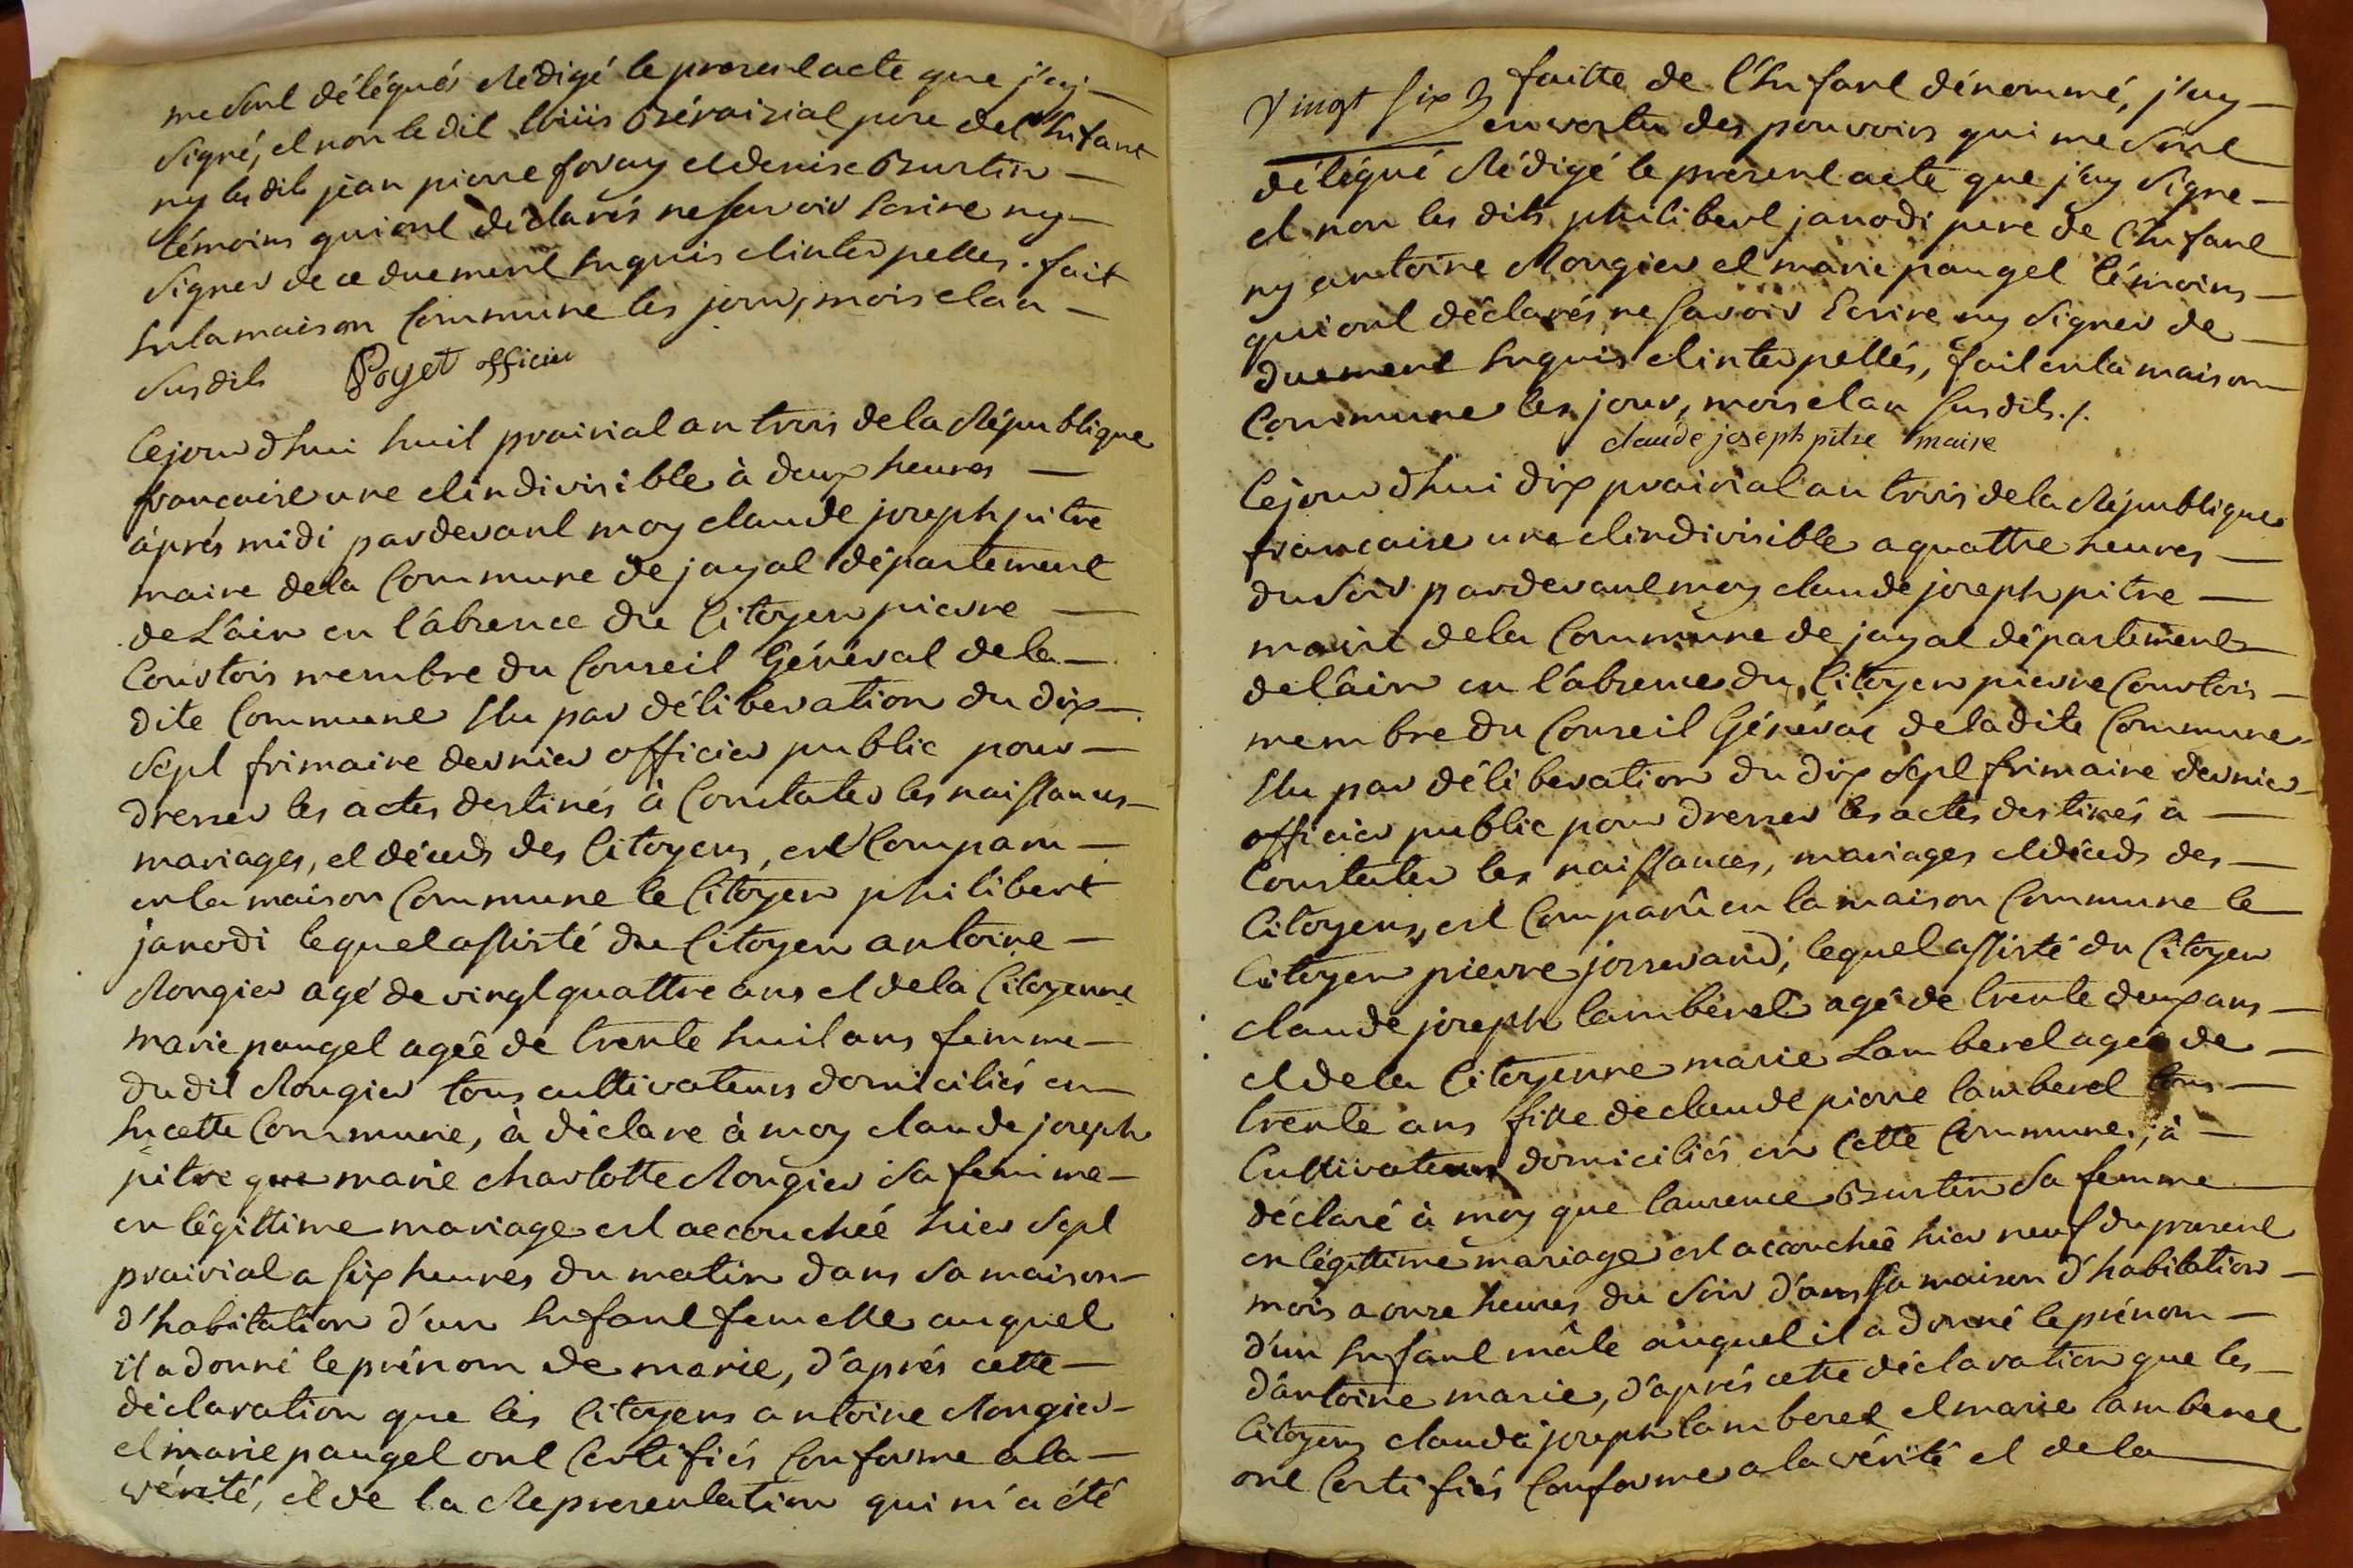 me sont délégués Rédigé le present acte que j'ay
signé, et non le dit père de l'Enfant
ny les dits jean pierre foray et denise Burtin
témoins qui ont déclarés ne savoir Ecrire ny
signer de ce duement Enquis et interpellés. fait
En la maison Commune les jour, mois et an
susdits Poyet officier
Cejourd'hui huit prairial an trois de la République
francaise une et indivisible à deux heures
après midi pardevant moy claude joseph pitre
maire de la Commune de jayat département
de L'ain en l'absence du Citoyen pierre
Courtois membre du Conseil Général de la
dite Commune Elu par déliberation du dix
sept frimaire dernier officier public pour
dresser les actes destinés à Constater les naissances
mariages, et déceds des Citoyens, est Comparu
en la maison Commune le Citoyen philibert
janodi lequel assisté du Citoyen antoine
Rongier agé de vingt quattre ans et de la Citoyenne
marie pauget agée de trente huit ans femme
du dit Rongier tous cultivateurs domiciliés en
En cette Commune, à déclare à moy claude joseph
pitre que marie charlotte Rongier sa femme
en légittime mariage est accouchée hier sept
prairial a six heures du matin dans sa maison
d'habitation d'un Enfant femelle auquel
il a donné le prénom de marie, d'après cette
déclaration que les Citoyens antoine Rongier
et marie pauget ont Certifiés Conforme a la
vérité, et de la Representation qui m'a été
Vingt six faitte de l'Enfant dénommé, j'ay
en vertu des pouvoirs qui me sont
délégué Rédigé le present acte que j'ay signe
et non les dits philibert janodi pere de l'Enfant
ny antoine Rongier et marie pauget témoins
qui ont déclarés ne savoir Ecrire ny signer de
duement Enquis et interpellés, fait en la maison
Commune les jour, mois et an susdits ./.
claude joseph pitre maire
Cejourd'hui dix prairial an trois de la République
francaise une et indivisible a quattre heures
du soir pardevant moy claude joseph pitre
maire de la Commune de jayat département
de l'ain en l'absence du Citoyen pierre Courtois
membre du Conseil Général de la dite Commune
Elu par déliberation du dix sept frimaire dernier
officier public pour dresser les actes destinés à
Constater les naissances, mariages et décéds des
Citoyens, est Comparû en la maison Commune le
Citoyen pierre josserand, lequel assisté du Citoyen
claude joseph lamberet agé de trente deux ans
et de la Citoyenne marie Lamberet agée de
trente ans fille de claude pierre lamberet tous
Cultivateurs domiciliés en Cette Commune, à
déclaré à moy que laurence Burtin sa femme
en légittime mariage est accouchée hier neuf du present
mois a onze heures du soir d'ans sa maison d'habitation
d'un Enfant mâle auquel il a donné le prénom
d'antoine marie, d'après cette déclaration que les
Citoyens claude joseph lamberet et marie lamberet
ont Certifiés Conforme a la vérité et de la